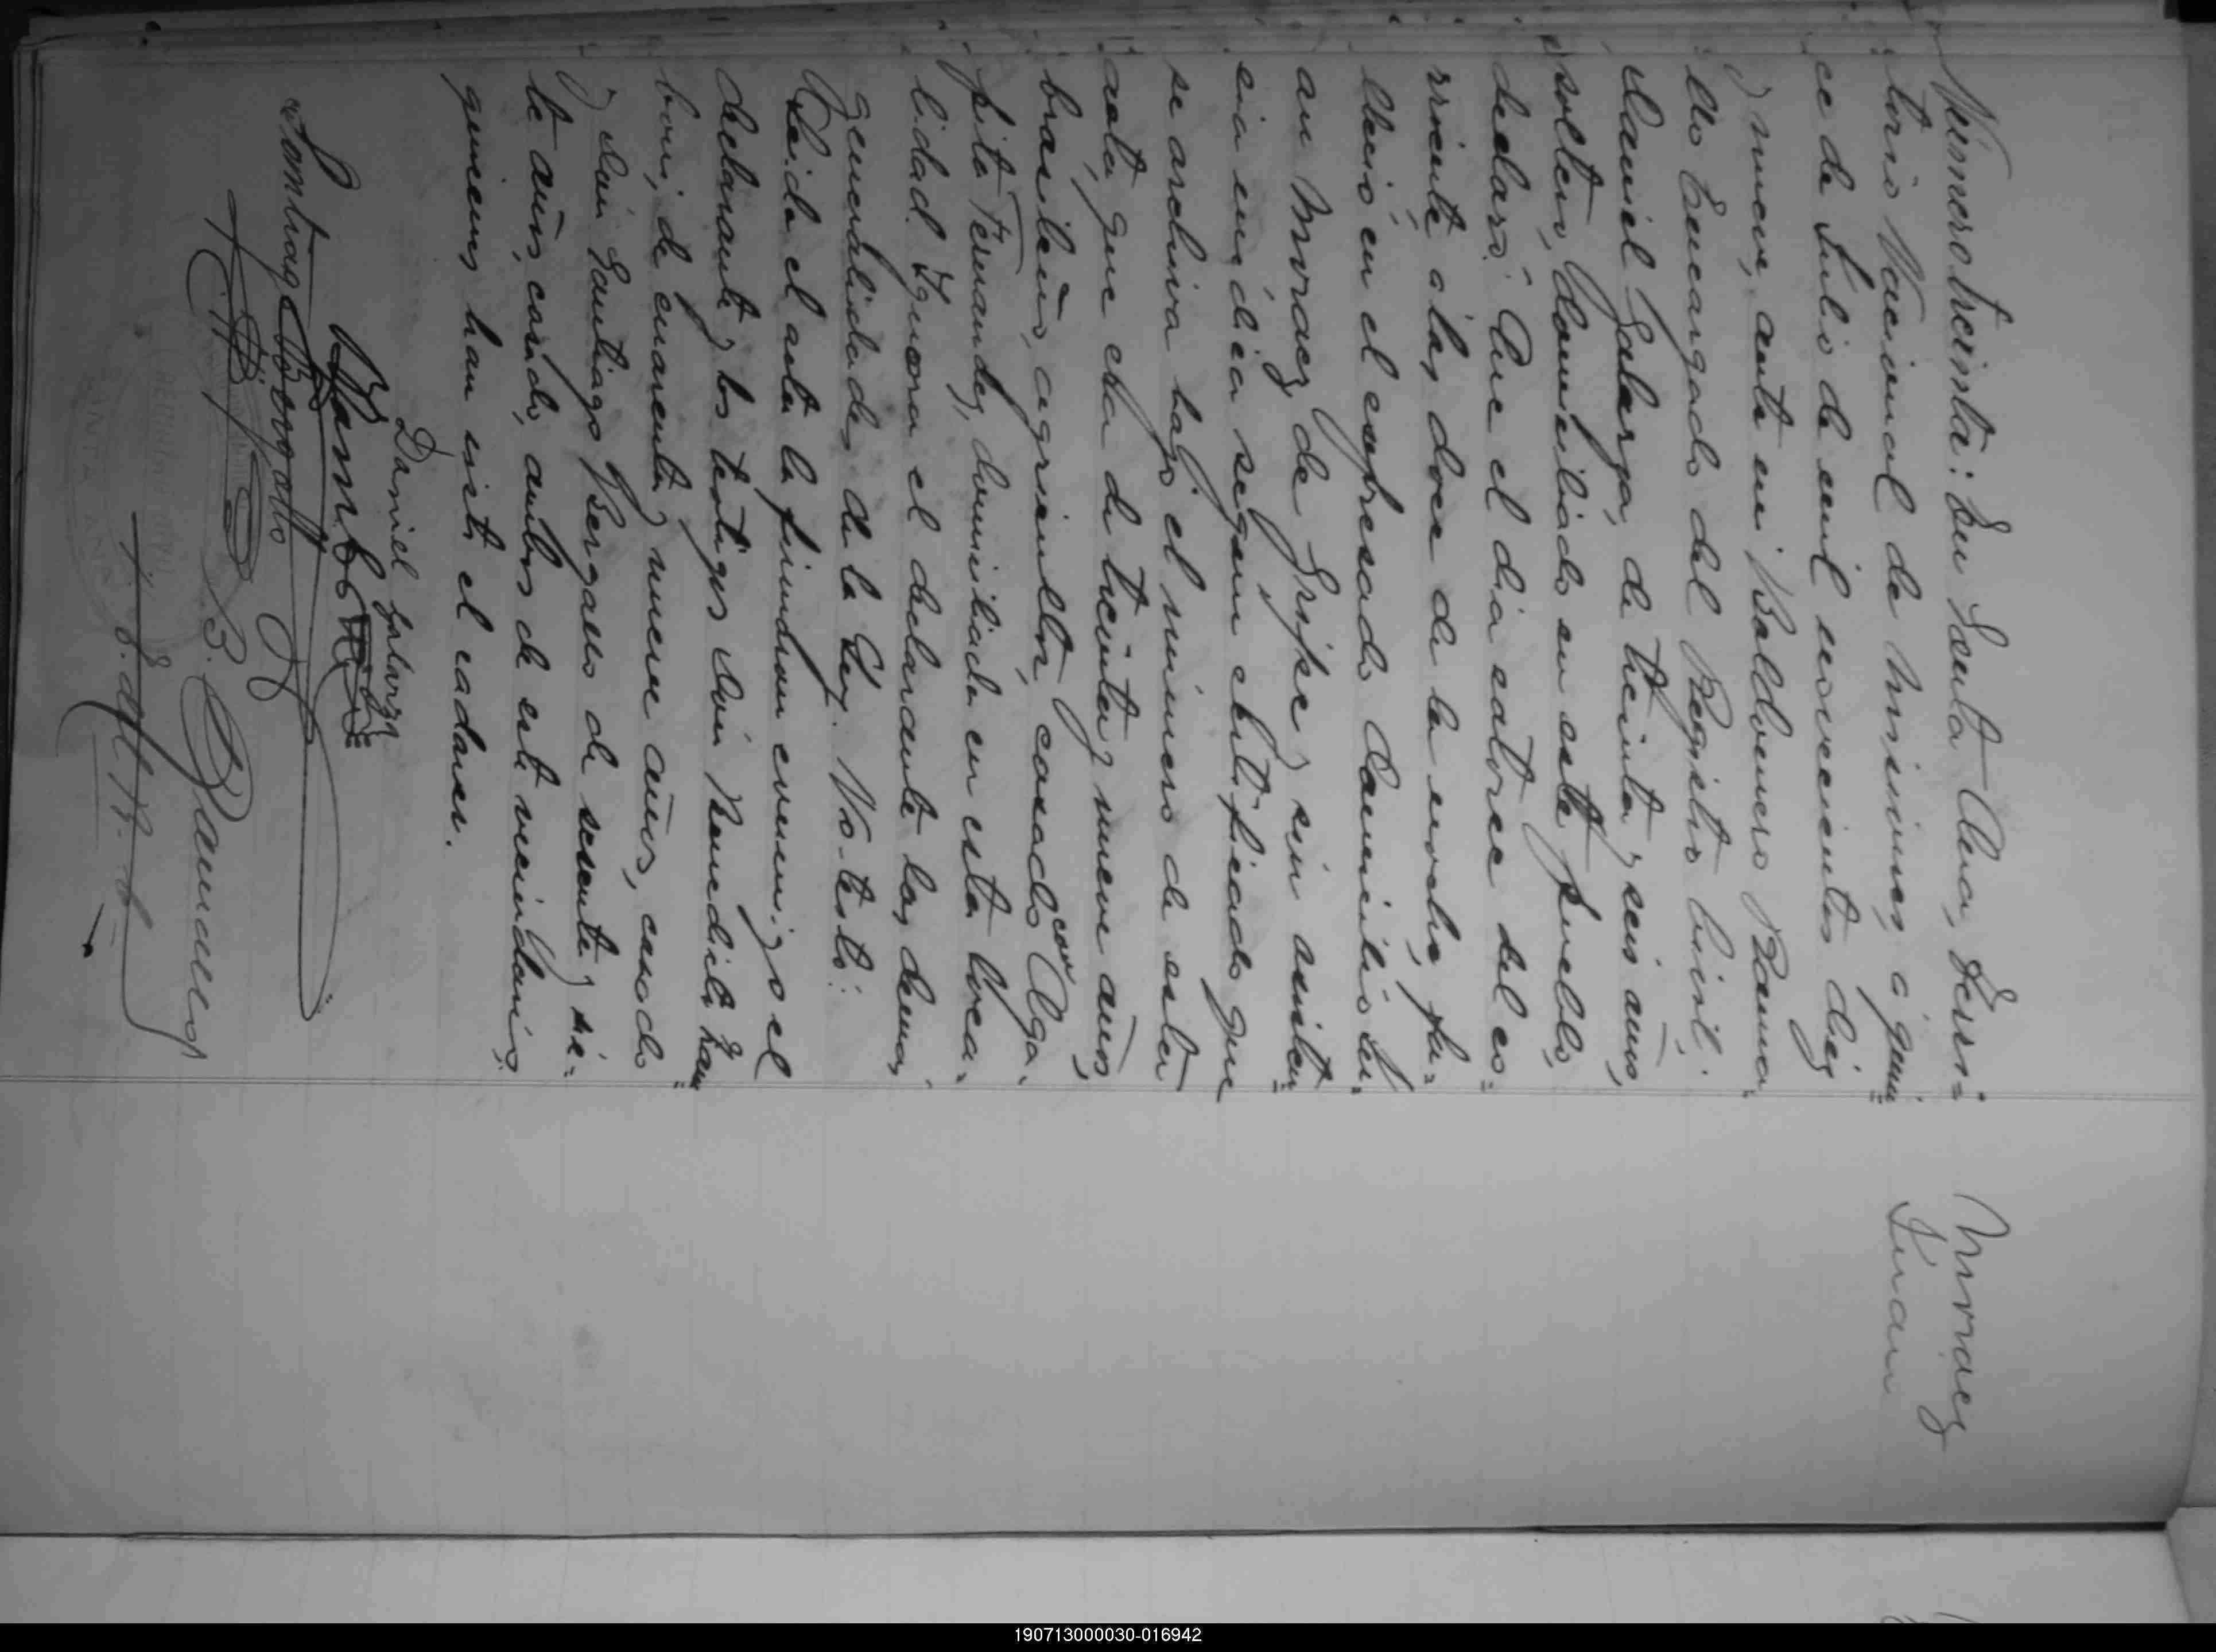 Número treinta: En Santa Ana, Terri=
torio Nacional de Misiones, a quin=
ce de Julio de mil novecientos diez
y nueve, ante mi Baldomero Bama
Encargado del Registro Civil,
Daniel Galarza, de treinta y seis años,
soltero, domiciliado en este pueblo,
declaró: Que el dia catorce del co=
rriente a las doce de la noche, fa=
lleció en el expresado domicilio Ju=
an Morvaez de Gripe y sin asisten=
cia médica según certificado que
se archiva bajo el número de esta
acta, que era de treinta y nueve años,
brasileño, agricultor, casado con Aga=
pita Fernandez, domiciliada en esta loca=
lidad. Ignora el declarante las demas
generalidades de la Ley. No testó.
Leida el acta la firmaron conmigo el
declarante y los testigos don Benedicto Zam=
boni, de cuarenta y nueve años, casado
y don Santiago Bergallo de sesenta y sie=
te años, casado, ambos de este vecindario,
quienes han visto el cadaver.
Daniel Galarza
Santiago Bergallo
Morvaez
Juan
190713000030-016942